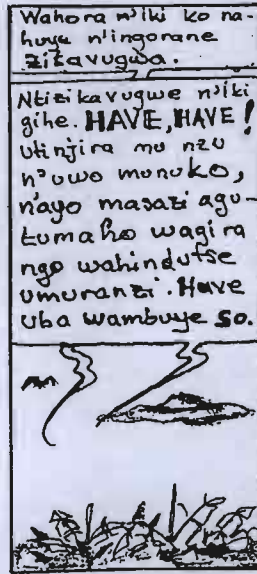 Wahora n'iki ko na-
huye n'ingorane
zitavugwa.
Ntizikavugwe n'iki
gihe. HAVE, HAVE!
utinjira mu nzu
n'uwo munuko,
n'ayo masazi agu-
tumaho wagira
ngo wahindutse
umuranzi. Have
uba wambuye so.